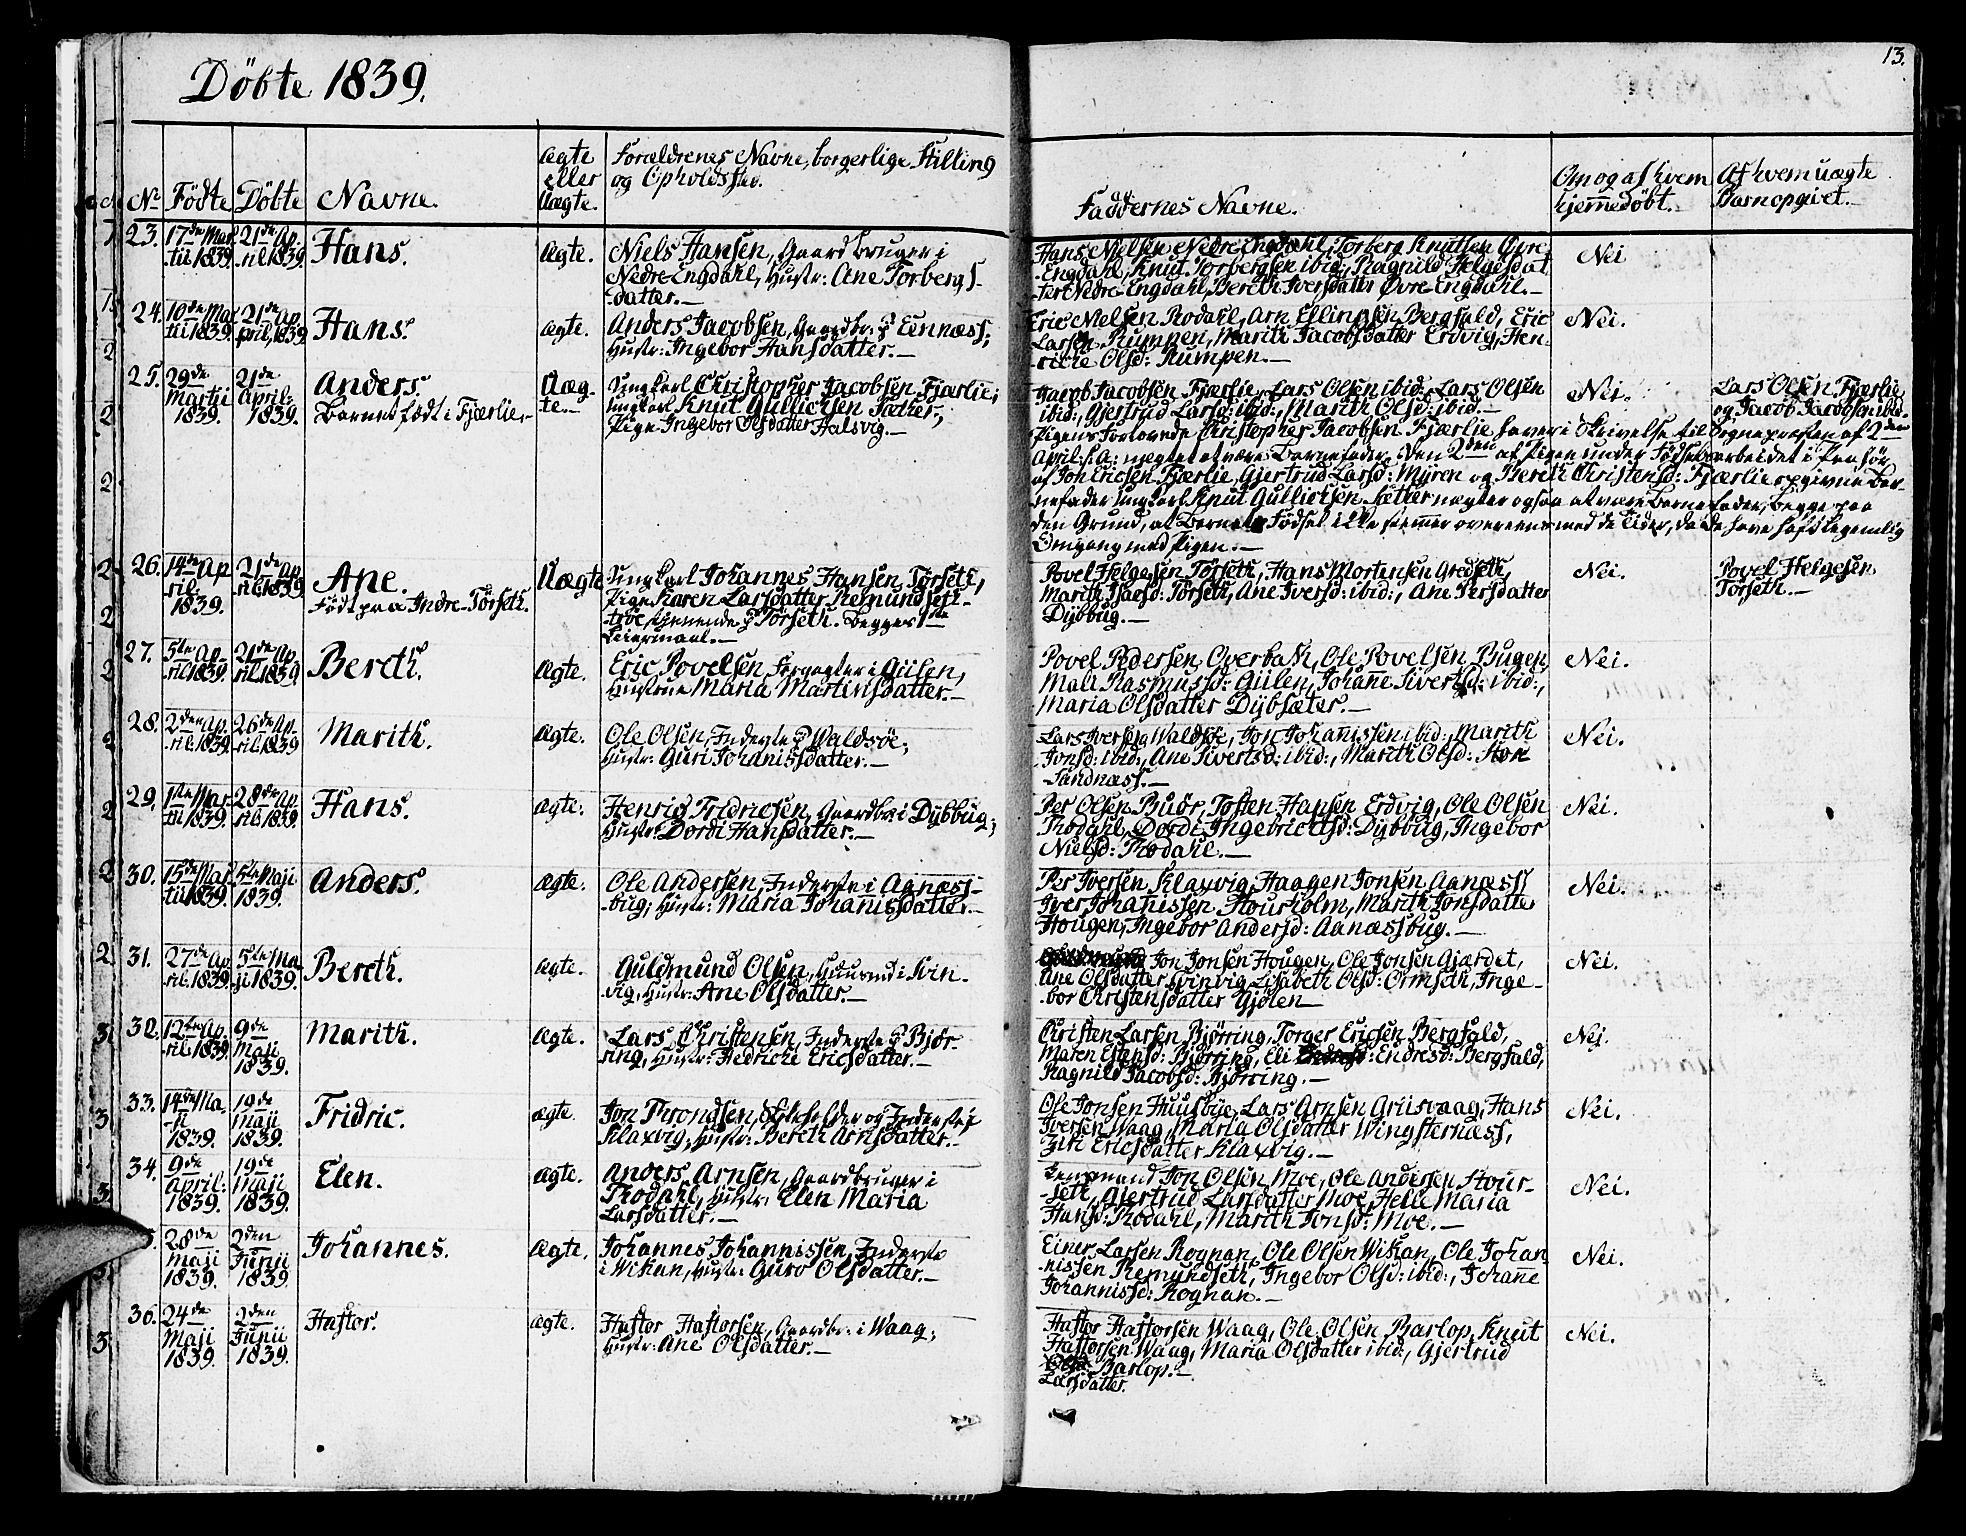 Döbte 1839.
13.
No
Födte
Döbte
Navne.
Ægte
eller
Uægte.
Forældrenes Navne, borgerlige Stilling
og Opholdssted.
Faddernes Navne.
Om og af hvem
hjemedöbt.
Af hvem uægte
Barn opgivet.
23. 17de Mar
tii 1839.
21de Ap
ril 1839.
Hans.
Ægte.
Niels Hansen, Gaardbruger i
Nedre Engdahl, Hustr: Ane Torbergs
datter.
Hans Nielsen Nedre Engdahl, Torberg Knutsen Övre
Engdahl, Knut Torbergsen ibid:, Ragnild Helgesdat
ter Nedre Engdahl, Bereth Iversdatter Övre Engdahl.
Nei
24. 10de Mar
tii 1839.
21de Ap
ril, 1839.
Hans.
ægte.
Anders Jacobsen, Gaardbr: Eennæss,
Hustr: Ingebor Hansdatter.
Eric Nielsen Rodahl, Arn Ellingsen Bergfald, Eric
Larsen Rumpen, Marith Jacobsdatter Erdvig, Hen-
ricke Olsd: Rumpen.
Nei.
25. 29de
Martii
1839.
21de
April:
1839.
Anders.
Barnet födt i Fjærlie.
Uæg-
te.
Ungkarl Christopher Jacobsen Fjærlie;
Ungkarl Knut Gullichsen Sætter,
Pige Ingebor Olsdatter Halsvig.
Jacob Jacobsen Fjærlie, Lars Olsen ibid:, Lars Olsen
ibid:, Gjertrud Larsd: ibid:, Marith Olsd: ibid.
Nei.
Lars Olsen Fjærlie
og Jacob Jacobsen ibid.
Pigens Forlovede Christopher Jacobsen Fjærlie haver i Skrivelse til Sognepræsten af 2den
April s. A: negtet at være Barnefader. Den 2den af Pigen under Födselsarbeidet i
af Jon Ericsen Fjærlie, Gjertrud Larsd: Myren og Bereth Christensd: Fjærlie opgivne Bar-
nefader Ungkarl Knut Gullichsen Sætter negter ogsaa at være Barnefader, begge paa
den Grund, at Barnets Födsel ikke stemmer overeens med de Tider, da de have havt legemlig
Omgang med Pigen.
26. 14de Ap
ril
1839.
21de Ap
ril 1839.
Ane.
Födt paa Indre-Törseth.
Uægte
Ungkarl Johannes Hansen Törseth,
Pige Karen Larsdatter Remundset-
tjenende Törseth. Begges 1ste
Leiermaal.
Povel Helgesen Törseth, Hans Mortensen Gredseth,
Marith Isacsd: Törseth, Ane Iversd: ibid:, Ane Persdatter
Dybbug.
Nei.
Povel Helgesen
Törseth.
27. 5te Ap
ril 1839.
21de Ap
ril 1839.
Bereth.
Ægte.
Eric Povelsen, Forpagter i Gulen,
Hustrue Maria Martinsdatter.
Povel Pedersen Overbak, Ole Povelsen Bugen,
Mali Rasmusd: Gulen, Johane Sivertsd: ibid:,
Maria Olsdatter Dybsæter.
Nei.
28. 2den Ap
ril 1839.
26de Ap
ril 1839
Marith.
Ægte.
Ole Olsen, Inderste Waldsöe,
Hustr: Guri Johanisdatter.
Lars Iversen Waldsöe, Jon Johanissen ibid:, Marith
Jonsd: ibid:, Ane Sivertsd: ibid:, Marith Olsd:
Sandnæss.
Nei.
29. 1ste Mar
tii 1839.
28de Ap
ril 1839.
Hans.
ægte.
Henric Fridricsen, Gaardbr: i Dybbug;
Hustr: Dordi Hansdatter.
Per Olsen Buör, Tosten Hansen Erdvig, Ole Olsen
Rodahl, Dordi Ingebrictsd: Dybbug, Ingebor
Nielsd: Rodahl.
Nei.
30. 15de Mar
tii 1839.
5te Maji
1839.
Anders.
Ægte.
Ole Andersen, Inderste i Agnæss-
bug; Hustr: Maria Johanisdatter.
Per Iversen Klaxvig, Haagen Jonsen Aanæss
Iver Johanissen Stourholm, Marith Jonsdatter
Hougen, Ingebor Andersd: Aanæssbug.
Nei.
31. 27de Ap
ril 1839.
5te Ma
ji 1839.
Bereth.
ægte.
Guldmund Olsen, Huusmd: i Svin-
vig, Hustr: Ane Olsdatter.
Jon Jonsen Hougen, Ole Jonsen Gjærdet,
Ane Olsdatter Svinvig, Lisabeth Olsd: Ormseth, Inge-
bor Christensdatter Gjölen
Nei.
32. 12te Ap
ril 1839
9de
Maji
1839.
Marith.
Ægte.
Lars Christensen, Inderste Björ-
ring, Hustr: Fredricke Ericsdatter.
Christen Larsen Björring, Torger Ericsen Bergfald,
Maren Estensd: Björring, Eli Endresd: Bergfald,
Ragnild Jacobsd: Björring.
Nei.
33. 14de Ma
ji
1839.
19de
Maji
1839.
Fridric.
ægte.
Jon Trondsen, Skoleholder og Inderste i
Klaxvig, Hustr: Bereth Arnsdatter.
Ole Jonsen Huusbye, Lars Arnsen Griisvaag, Hans
Iversen Waag, Maria Olsdatter Wingsternæss,
Ziri Ericsdatter Klaxvig.
Nei.
34. 9de
April:
1839.
19de
Maji
1839.
Elen.
Ægte.
Anders Arnsen, Gaardbruger i
Rodahl, Hustr: Elen Maria
Larsdatter.
Jon Olsen Moe, Ole Andersen Stour-
seth, Gjertrud Larsdatter Moe, Helle Maria
Hansd: Rodahl, Marith Jonsd: Moe.
Nei.
28de
Maji
1839.
2den
Junii
1839.
Johannes.
Ægte.
Johannes Johannissen, Inderste
i Wikan, Hustr: Guro Olsdatter.
Einer Larsen Rognan, Ole Olsen Wikan, Ole Johan-
nissen Remundseth, Ingebor Olsd: ibid:, Johane
Johannissd: Rognan.
Nei.
36. 24de
Maji
1839.
2den
Junii
1839.
Hastor.
ægte.
Hastor Hastorsen, Gaardbr: i Waag;
Hustr: Ane Olsdatter.
Hastor Hastorsen Waag, Ole Olsen Barlop, Knut
Hastorsen Waag, Maria Olsdatter ibid:, Gjertrud
Barlop.
Larsdatter.
Nei.